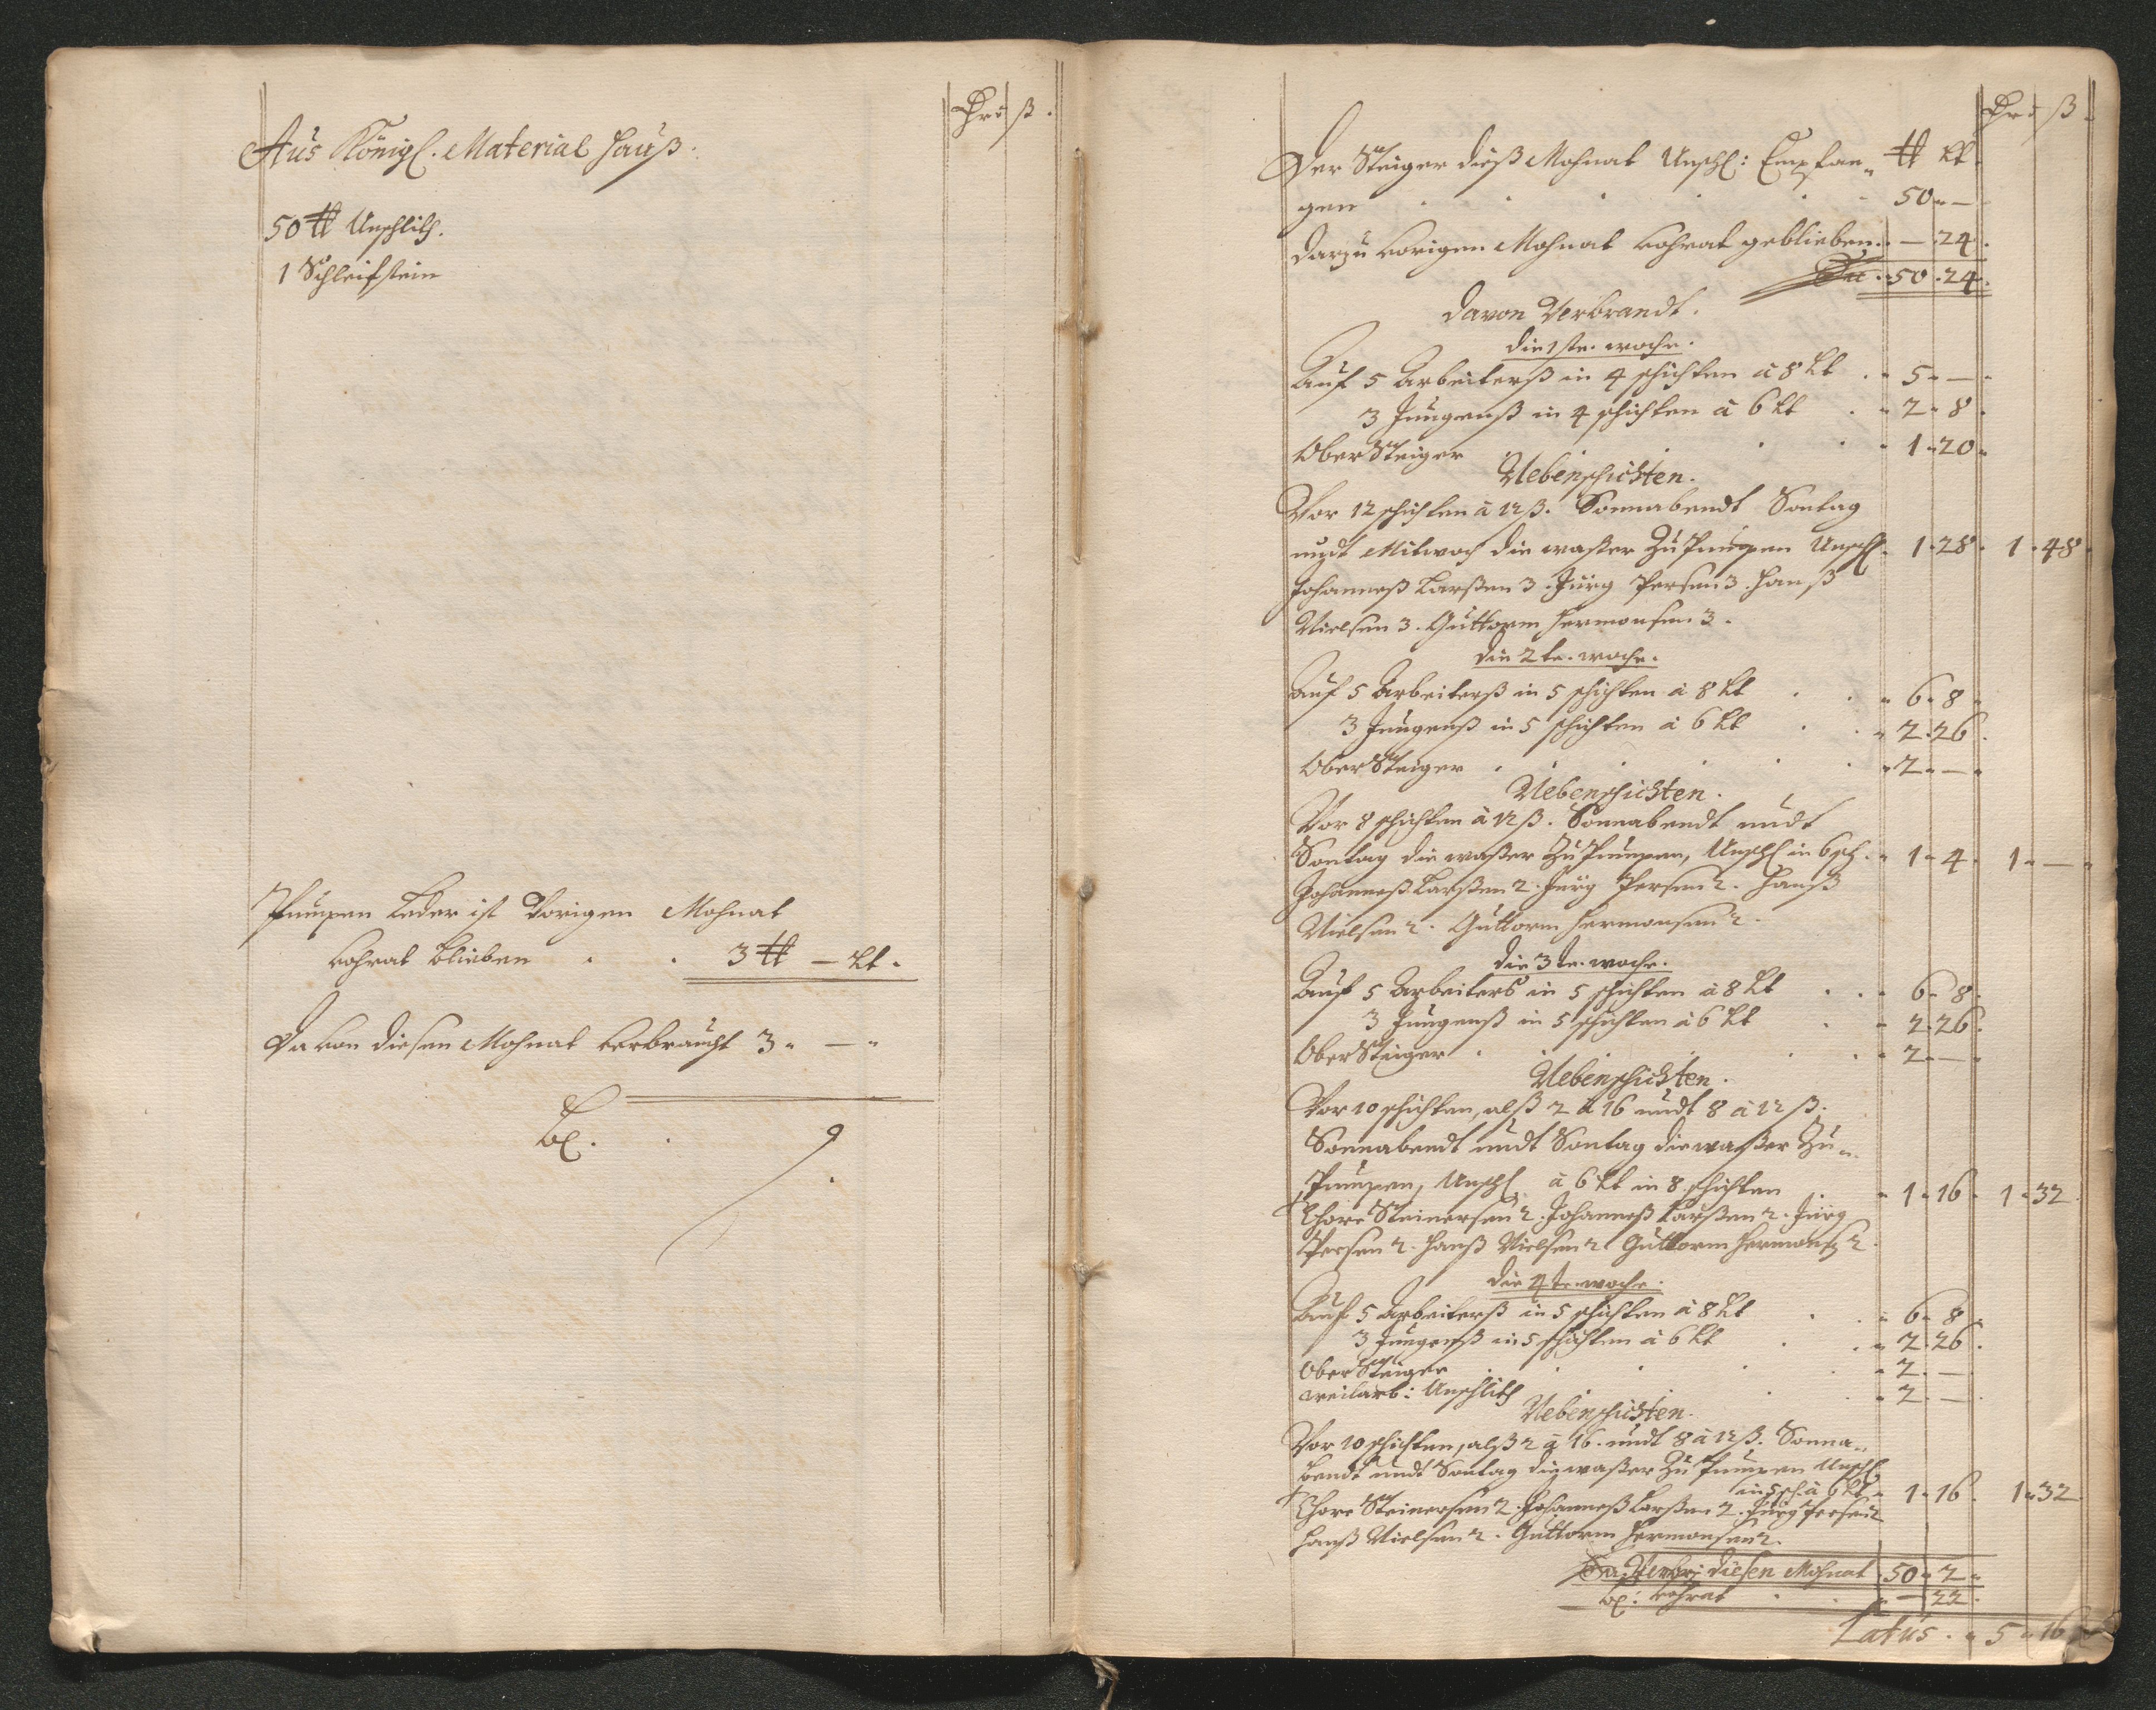 Rdr ß.
Aus Königl. Material Hauß.
50 ℔ Unschlith.
1 Schleifstein
Pumpen Leder ist Vorigen Mohnat
vohrat blieben . . 3 ℔ — Lt.
Da von diesen Mohnat verbraucht 3 " — "
Bl. . 9.
Rdr ß.
Der Steiger dieß Mohnat Unschl: Empfan- ℔ Lt.
gen . . . . . . 50 " —
darzu vorigen Mohnat vohrat geblieben. . — . 24.
Sa . 50 . 24.
davon Verbrandt.
die 1ste. woche.
Auf 5 Arbeiterß in 4 schichten à 8 Lt . " 5 " —
3 Jungenß in 4 schichten à 6 Lt . " 2 " 8.
Ober Steiger . . . " 1 " 20 "
Uebenschichten.
Vor 12 schichten à 12 ß. Sonnabendt Sontag
undt Mitwoch die waßer Zu Pumpen Unschl. 1 " 28. 1 . 48.
Johanneß Larßen 3. Jürg Persen 3. Hanß
Nielsen 3. Guttorm Hermonsen 3.
die 2te. woche.
Auf 5 Arbeiterß in 5 schichten à 8 Lt . . " 6 " 8 "
3 Jungenß in 5 schichten à 6 Lt . . " 2 . 26.
Ober Steiger . . . . " 2 " — "
Uebenschichten.
Vor 8 schichten à 12 ß. Sonnabendt undt
Sontag die waßer Zu Pumpen, Unschl in 6 sch. " 1 " 4. 1 " — "
Johanneß Larßen 2. Jürg Persen 2. Hanß
Nielsen 2. Guttorm Hermonsen 2.
die 3te. woche.
Auf 5 Arbeiters in 5 schichten à 8 Lt . . " 6 " 8.
3 Jungenß in 5 schichten à 6 Lt . " 2 . 26.
Ober Steiger . . . . " 2 " — "
Uebenschichten.
Vor 10 schichten, alß 2 à 16 undt 8 à 12 ß.
Sonnabendt undt Sontag die waßer Zu-
Pumpen, Unschl à 6 Lt in 8 schichten . " 1 " 16 " 1 " 32.
Thore Steinersen 2. Johanneß Larßen 2. Jürg
Persen 2. Hanß Nielsen 2 Guttorm Hermonsen 2.
die 4te woche.
Auf 5 Arbeiterß in 5 schichten à 8 Lt . " 6 " 8.
3 Jungenß in 5 schichten à 6 Lt . . " 2 . 26.
Ober Steiger . . . " 2 . —
weilarb: Unschlith . . " 2 . — .
Uebenschichten.
Vor 10 schichten, alß 2 à 16. undt 8 à 12 ß. Sonna-
bendt undt Sontag die waßer Zu Pumpen Unschl
in 8 sch. à 6 Lt " 1 " 16. 1 " 32
Thore Steinersen 2. Johanneß Larßen 2. Jürg Persen 2
Hanß Nielsen 2. Guttorm Hermonsen 2.
Sa. Verbr: diesen Mohnat 50 " 2 "
Bl: vohrat . . " — 22.
Latus . " 5 " 16